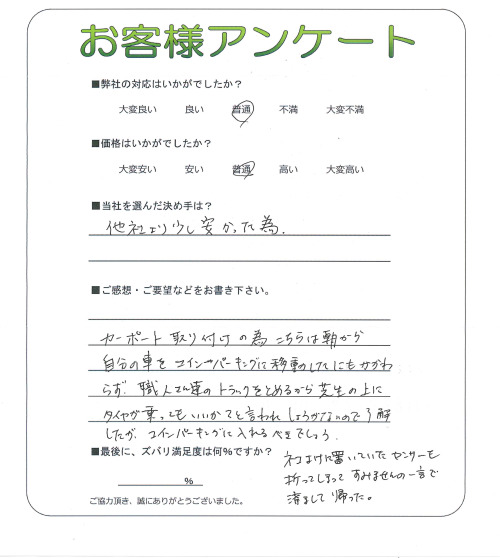 お客様アンケート
■弊社の対応はいかがでしたか？
大変良い 良い 普通 不満 大変不満
■価格はいかがでしたか？
大変安い 安い 普通 高い 大変高い
■当社を選んだ決め手は？
他社より少し安かった為.
■ご感想・ご要望などをお書き下さい。
カーポート取り付けの為こちらは朝から
自分の車をコインパーキングに移動したにもかかわ
らず、職人さん車のトラックをとめるから芝生の上に
タイヤが乗ってもいいかと言われしょうがないので了解
したが、コインパーキングに入れるべきでしょう.
■最後に、ズバリ満足度は何%ですか？
%
ネコよけに置いていたセンサーを
折ってしまってすみませんの一言で
済まして帰った。
ご協力頂き、誠にありがとうございました。